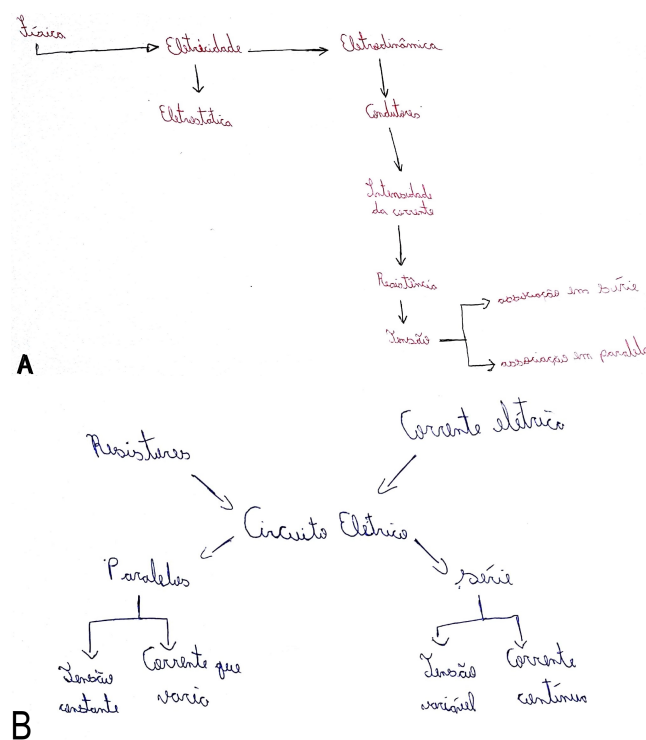 Física
Eletricidade
Eletrodinâmica
Eletrostática
Condutores
Intensidade
da corrente
Resistência
Tensão
associação em série
associação em paralelo
A
Resistores
Corrente elétrica
Circuito Elétrico
Paralelos
série
Tensão
constante
Corrente que
varia
Tensão
variável
Corrente
contínua
B